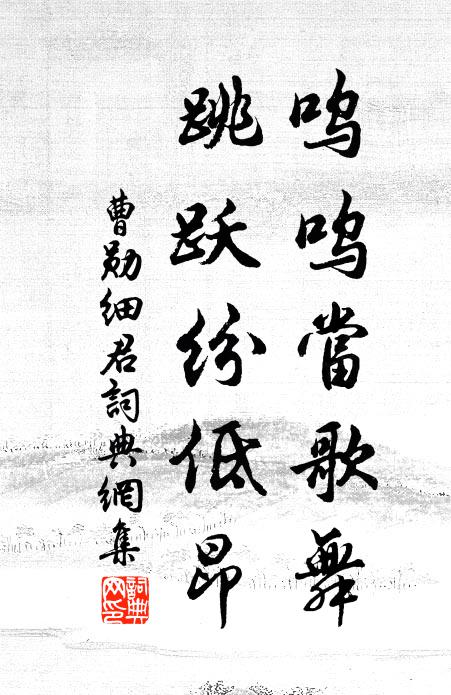 呜呜當歌舞
跳跃纷低昂
曹勋细君詞典網集
詞典